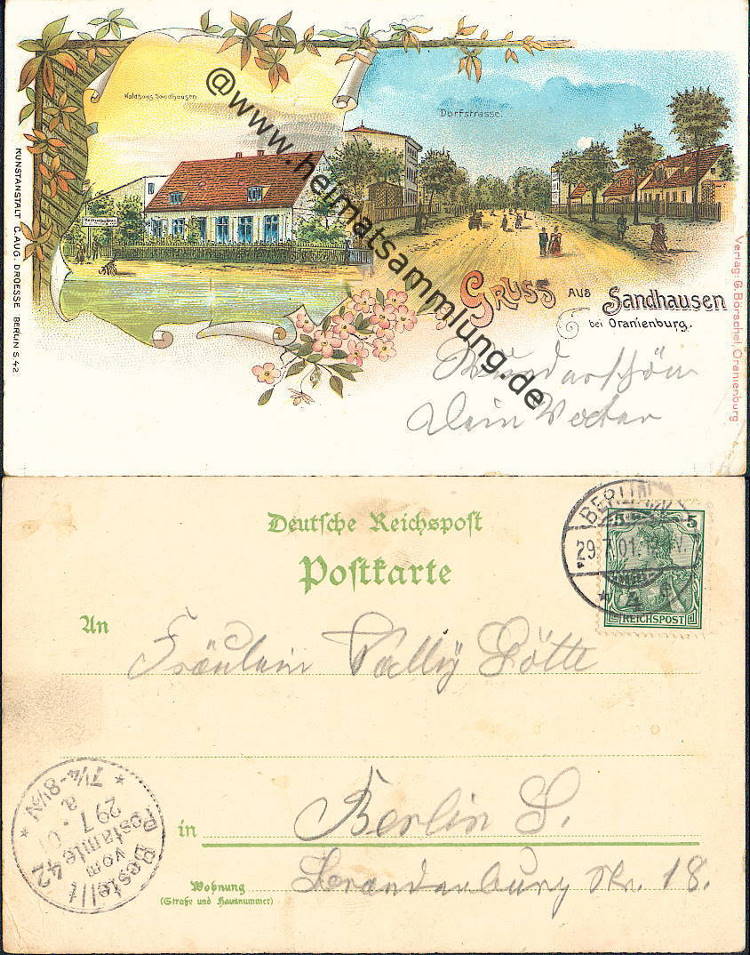 Waldhaus Sandhausen
Dorfstrasse.
@www.heimatsammlung.de
KUNSTANSTALT C. AUG. DROESSE BERLIN S 42
Verlag: G. Börschel, Oranienburg
GRUSS AUS Sandhausen
bei Oranienburg.
Wunderschön
Dein Vater
Deutsche Reichspost
Postkarte
BERLIN
29.7.01.
4
5 5
REICHSPOST
An
Fräulein Vally Götte
in Berlin S.
Wohnung Brandenburg Str. 18.
(Straße und Hausnummer)
Bestellt
vom
Postamte 42
29 7. 01
7¼-8½N